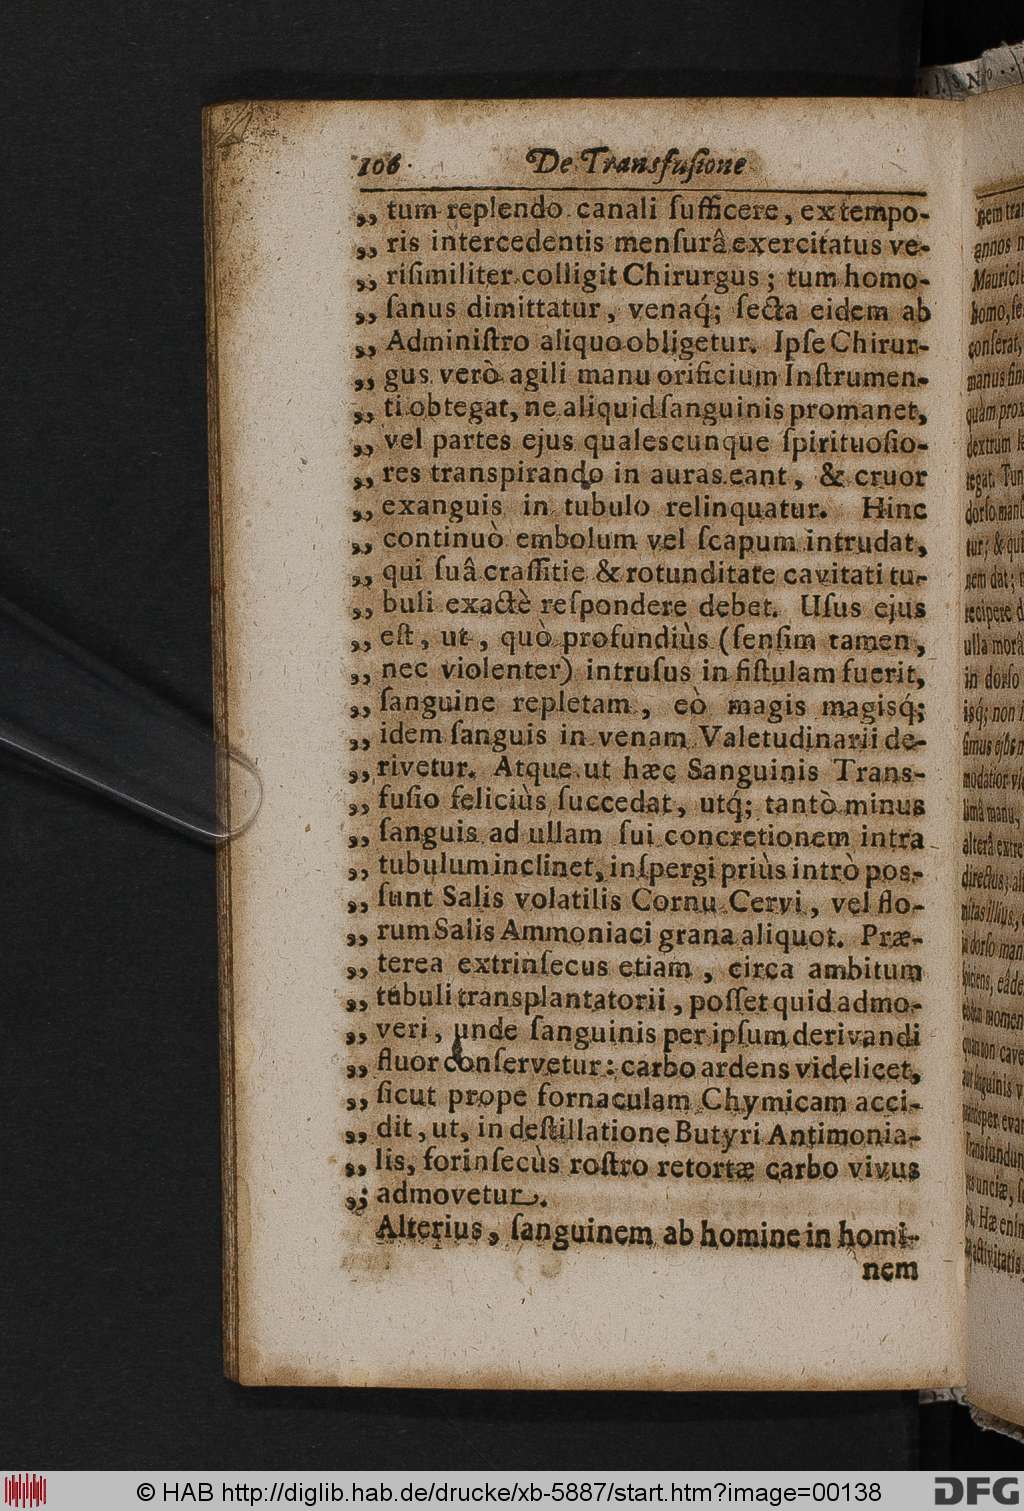 106. De Transfuſione
„ tum replendo canali ſufficere, ex tempo-
„ ris intercedentis menſurâ exercitatus ve-
„ riſimiliter colligit Chirurgus; tum homo-
„ ſanus dimittatur, venaq́; ſecta eidem ab
„ Adminiſtro aliquo obligetur. Ipſe Chirur-
„ gus verò agili manu orificium Inſtrumen-
„ ti obtegat, ne aliquid ſanguinis promanet,
„ vel partes ejus qualescunque ſpirituoſio-
„ res transpirando in auras eant, & cruor
„ exanguis in tubulo relinquatur. Hinc
„ continuò embolum vel ſcapum intrudat,
„ qui ſuâ craſſitie & rotunditate cavitati tu-
„ buli exactè reſpondere debet. Uſus ejus
„ eſt, ut, quò profundiùs (ſenſim tamen,
„ nec violenter) intruſus in fiſtulam fuerit,
„ ſanguine repletam, eò magis magisq́;
„ idem ſanguis in venam Valetudinarii de-
„ rivetur. Atque ut hæc Sanguinis Trans-
„ fuſio feliciùs ſuccedat, utq́; tantò minus
„ ſanguis ad ullam ſui concretionem intra
„ tubulum inclinet, inſpergi priùs intrò pos-
„ ſunt Salis volatilis Cornu Cervi, vel flo-
„ rum Salis Ammoniaci grana aliquot. Præ-
„ terea extrinſecus etiam, circa ambitum
„ tubuli transplantatorii, poſſet quid admo-
„ veri, unde ſanguinis per ipſum derivandi
„ fluor conſervetur: carbo ardens videlicet,
„ ſicut prope fornaculam Chymicam acci-
„ dit, ut, in deſtillatione Butyri Antimonia-
„ lis, forinſecùs roſtro retortæ carbo vivus
„ admovetur.
Alterius, ſanguinem ab homine in homi-
nem
© HAB http://diglib.hab.de/drucke/xb-5887/start.htm?image=00138
DFG